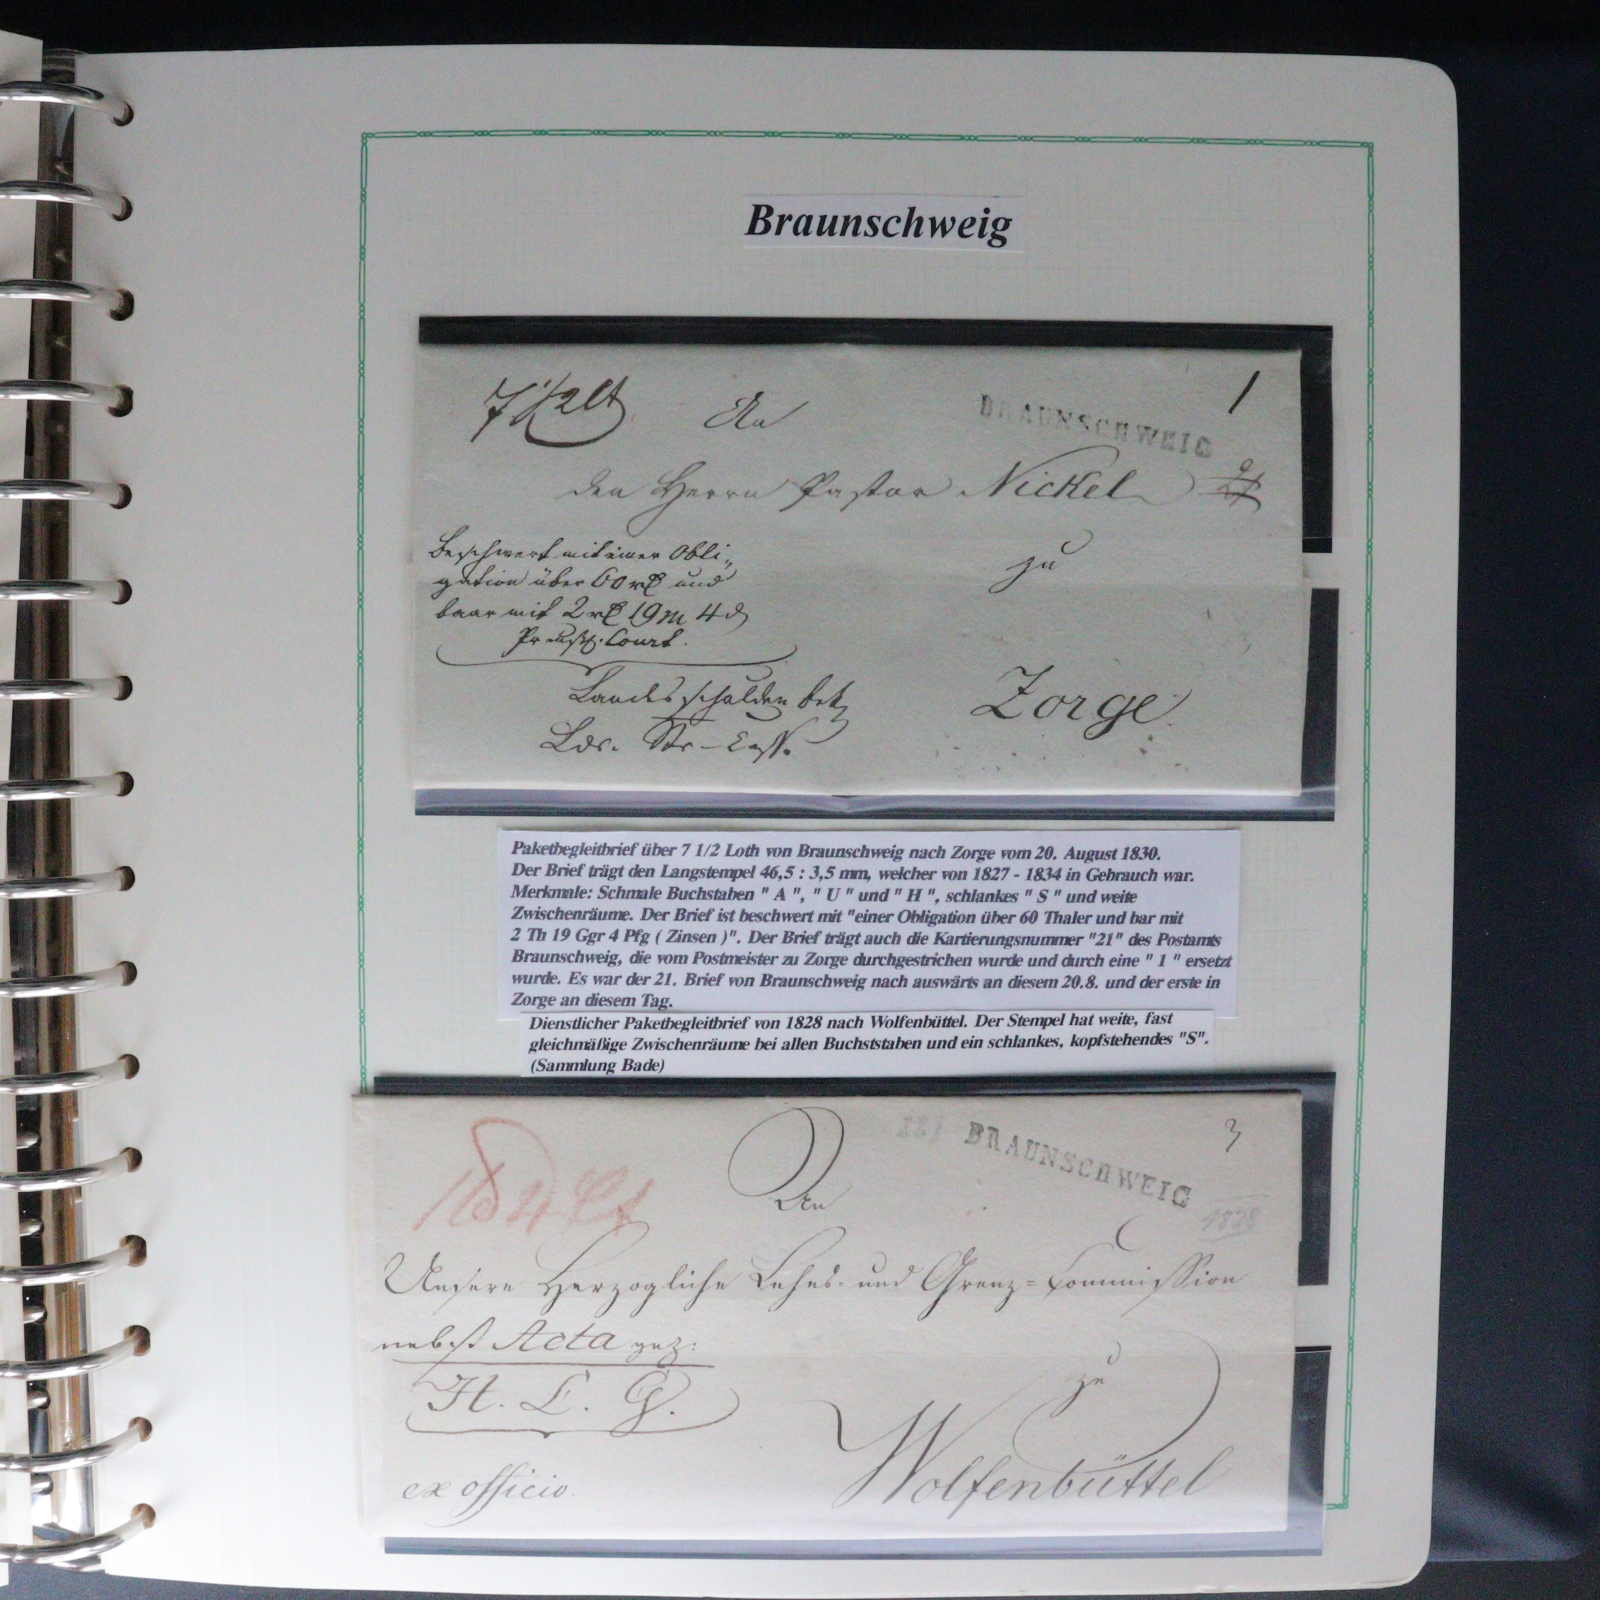 Braunschweig
7 1/2 Lt
An
BRAUNSCHWEIG
1
den Herrn Pastor Nickel
21
Beschwert mit einer Obli-
gation über 60 rt und
baar mit 2 rt 19 4 d
Preuß. Court.
zu
Landesschulden
Zorge
Paketbegleitbrief über 7 1/2 Loth von Braunschweig nach Zorge vom 20. August 1830.
Der Brief trägt den Langstempel 46,5 : 3,5 mm, welcher von 1827 - 1834 in Gebrauch war.
Merkmale: Schmale Buchstaben " A ", " U " und " H ", schlankes " S " und weite
Zwischenräume. Der Brief ist beschwert mit "einer Obligation über 60 Thaler und bar mit
2 Th 19 Ggr 4 Pfg ( Zinsen )". Der Brief trägt auch die Kartierungsnummer "21" des Postamts
Braunschweig, die vom Postmeister zu Zorge durchgestrichen wurde und durch eine " 1 " ersetzt
wurde. Es war der 21. Brief von Braunschweig nach auswärts an diesem 20.8. und der erste in
Zorge an diesem Tag.
Dienstlicher Paketbegleitbrief von 1828 nach Wolfenbüttel. Der Stempel hat weite, fast
gleichmäßige Zwischenräume bei allen Buchststaben und ein schlankes, kopfstehendes "S".
(Sammlung Bade)
An
BRAUNSCHWEIG
3
1828
Unsere Herzogliche Lehns- und Grenz-Commission
nebst Acta gez:
H. L. G.
zu
Wolfenbüttel
ex officio.